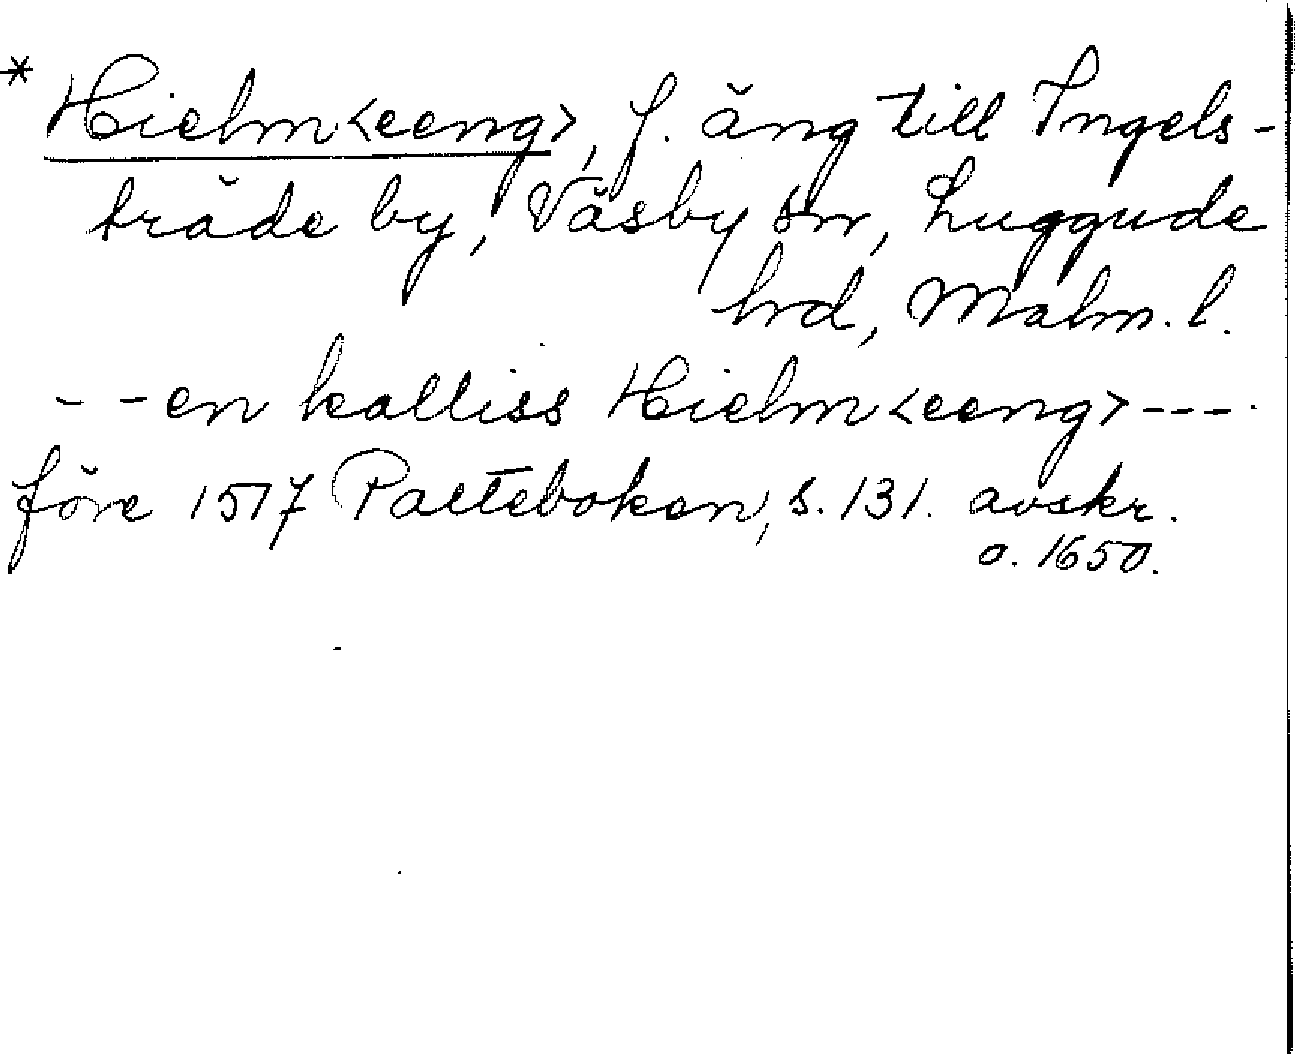 * Hielm<eeng>, f. äng till Ingels-
träde by, Väsby sn, Luggude
hrd, Malm. l.
- - en kalliss Hielm<eeng> - - -
före 1517 Palteboken, s. 131. avskr.
o. 1650.